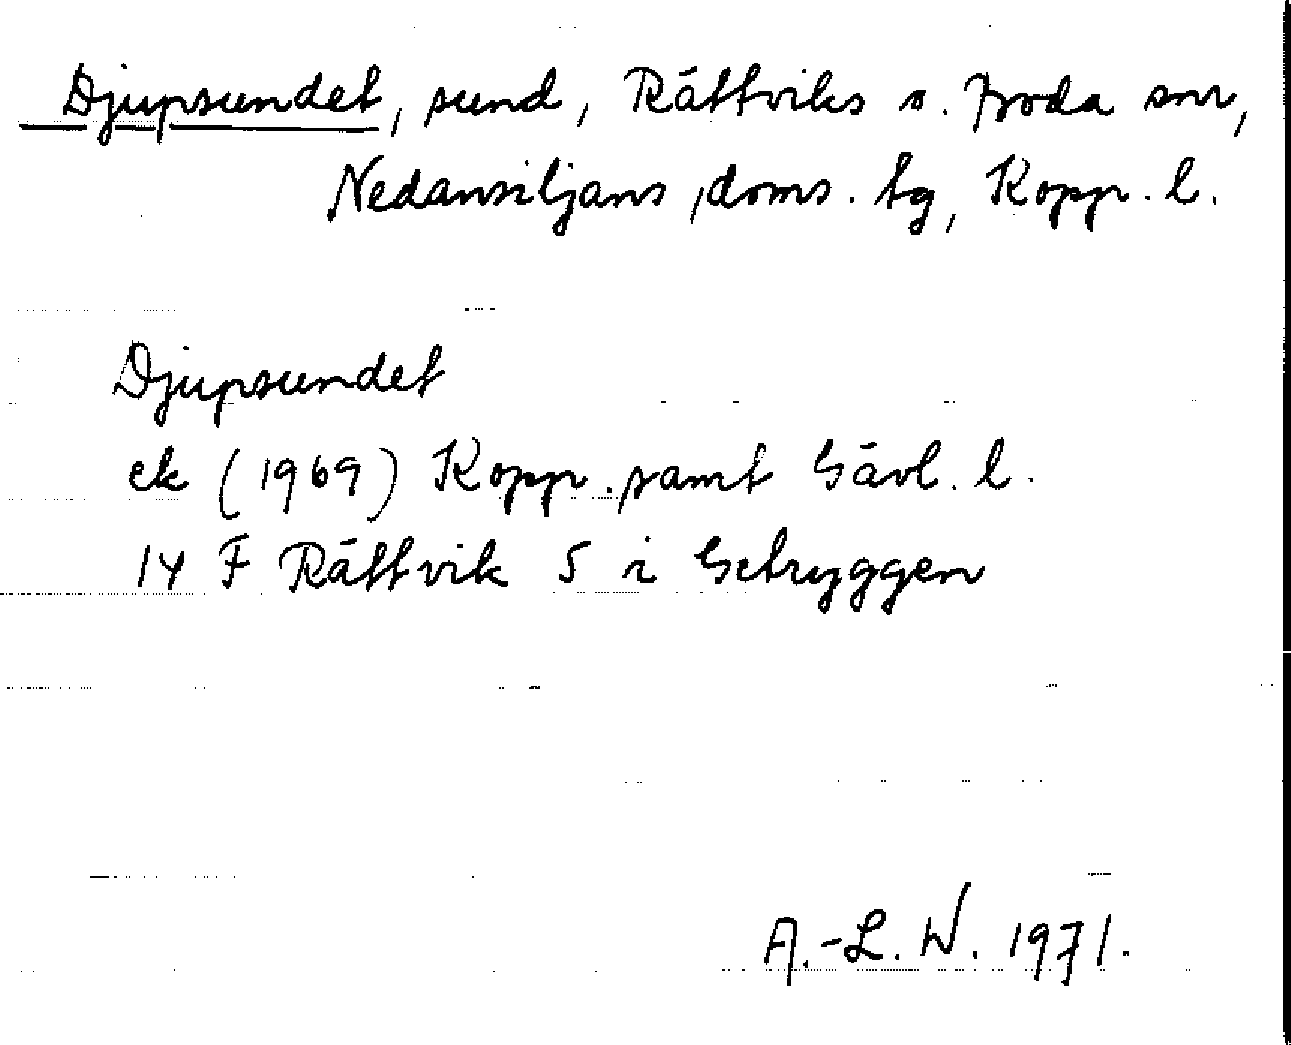 Djupsundet, sund, Rättviks o. Boda snr,
Nedansiljans doms. tg, Kopp. l.
Djupsundet
ek (1969) Kopp. samt Gävl. l.
14 F Rättvik 5 i Getryggen
A.-L. W. 1971.